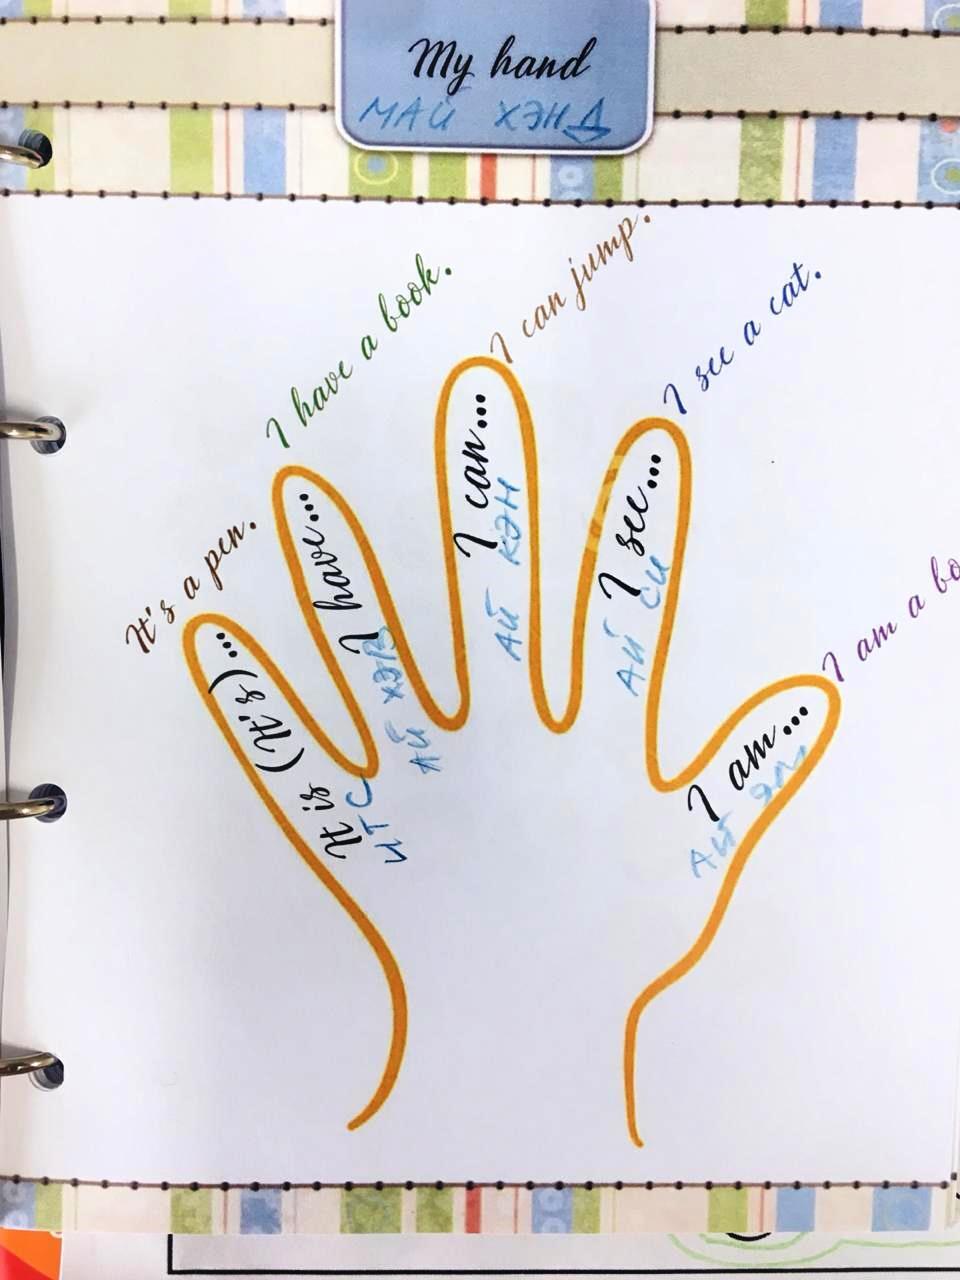 My hand
МАЙ ХЭНД
It's a pen.
I have a book.
I can jump.
I see a cat.
I am a bo
It is (It's)...
ИТС
I have...
АЙ ХЭВ
I can...
АЙ КЭН
I see...
АЙ СИ
I am...
АЙ ЭМ